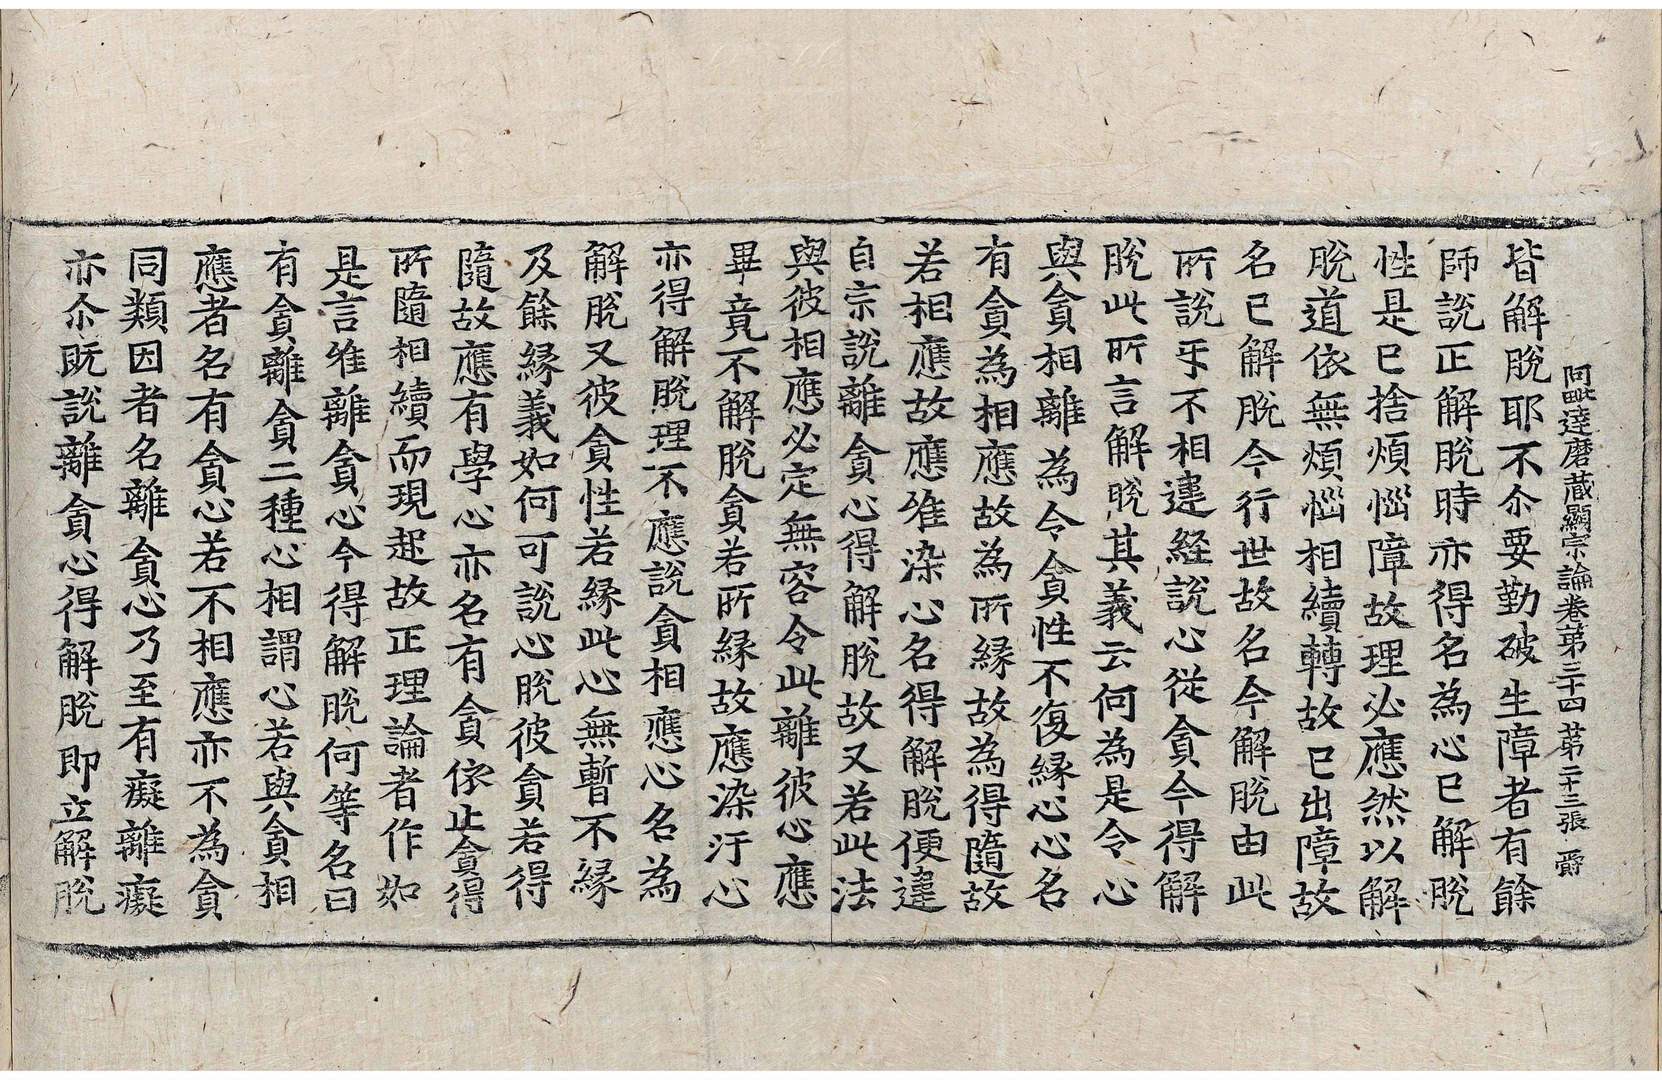 阿毗達磨蔵顯宗論卷第三十四 第二十三張 爵
皆解脫耶不尒要勤破生障者有餘
師說正解脫時亦得名為心已解脫
性是已捨煩惱障故理必應然以解
脫道依無煩惱相續轉故已出障故
名已解脫今行世故名今解脫由此
所說乎不相違經說心從貪今得解
脫此所言解脫其義云何為是令心
與貪相離為令貪性不復緣心心名
有貪為相應故為所緣故為得隨故
若相應故應唯染心名得解脫便違
自宗說離貪心得解脫故又若此法
與彼相應必定無容令此離彼心應
畢竟不解脫貪若所緣故應染汙心
亦得解脫理不應說貪相應心名為
解脫又彼貪性若緣此心無暫不緣
及餘緣義如何可說心脫彼貪若得
隨故應有學心亦名有貪依止貪得
所隨相續而現起故正理論者作如
是言唯離貪心今得解脫何等名曰
有貪離貪二種心相謂心若與貪相
應者名有貪心若不相應亦不為貪
同類因者名離貪心乃至有癡離癡
亦尒既說離貪心得解脫即立解脫